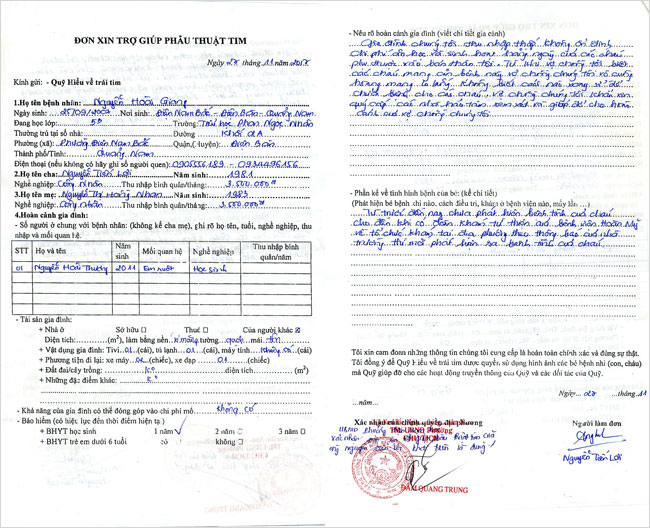 ĐƠN XIN TRỢ GIÚP PHẪU THUẬT TIM
Ngày 28 tháng 11 năm
Kính gửi: - Quỹ Hiểu về trái tim
1.Họ tên bệnh nhân: Nguyễn Hoài Giang
Ngày sinh: Nơi sinh: Điện Nam Bắc - Điện Bàn - Quảng Nam
Đang học lớp: 5D Trường: Tiểu học Phan Ngọc Nhân
Thường trú tại số nhà: Đường Khối 2A
Phường (xã): Phường Điện Nam Bắc Quận,(Huyện): Điện Bàn
Thành phố/Tỉnh: Quảng Nam
Điện thoại (nếu không có hãy ghi số người quen): 0905556189 - 0934496156
2.Họ tên cha: Nguyễn Tấn Lợi Năm sinh: 1981
Nghề nghiệp: Công Nhân Thu nhập bình quân/tháng: 3.500.000
3.Họ tên mẹ: Nguyễn Thị Hồng Nhạn Năm sinh: 1983
Nghề nghiệp: Công Nhân Thu nhập bình quân/tháng: 3.500.000
4.Hoàn cảnh gia đình:
- Số người ở chung với bệnh nhân: (không kể cha mẹ), ghi rõ họ tên, tuổi, nghề nghiệp, thu
nhập và mối quan hệ.
STT Họ và tên Năm sinh Mối quan hệ Nghề nghiệp Thu nhập bình quân/năm
01 Nguyễn Hoài Thương 2011 Em ruột Học sinh
- Tài sản gia đình:
+ Nhà ở Sở hữu Thuê Của người khác
Diện tích: (m²), làm bằng nền xi măng tường gạch mái tôn
+ Vật dụng gia đình: Tivi 01 (cái), tủ lạnh 01 (cái), máy tính không có (cái)
+ Phương tiện đi lại: xe máy (chiếc), xe đạp 01 (chiếc)
+ Đất đai/cây trồng: diện tích (m²)
+ Những đặc điểm khác:
- Khả năng của gia đình có thể đóng góp vào chi phí mổ: không có
- Bảo hiểm (có hiệu lực đến thời điểm hiện tại)
+ BHYT học sinh 1 năm 2 năm 3 năm
+ BHYT trẻ em dưới 6 tuổi có không
- Nêu rõ hoàn cảnh gia đình (viết chi tiết gia cảnh)
Gia đình chúng tôi thu nhập thấp không ổn định
chi phí ăn học và sinh hoạt hằng ngày của các cháu
phụ thuộc vào bản thân tôi. Từ khi vợ chồng tôi biết
các cháu mang căn bệnh này vợ chồng chúng tôi vô cùng
hoang mang lo lắng không biết
chữa bệnh cho cháu. vợ chồng chúng tôi
quý cấp các nhà hảo tâm xem xét và giúp đỡ cho hoàn
cảnh của vợ chồng chúng tôi
- Phần kể về tình hình bệnh của bé: (kể chi tiết)
(Phát hiện bệnh khi nào, cách điều trị, khám ở bệnh viện nào, mấy lần ...)
Từ trước đến nay chưa phát hiện bệnh tình của cháu
cho đến khi có đoàn khám từ thiện bệnh viện Hoàn Mỹ
về tổ chức khám tại địa phương theo thông báo của nhà
trường thì mới phát hiện ra bệnh tình của cháu
Tôi xin cam đoan những thông tin chúng tôi cung cấp là hoàn toàn chính xác và đúng sự thật.
Tôi đồng ý để Quỹ Hiểu về trái tim được quyền sử dụng hình ảnh các bé bệnh nhi (con, cháu)
mà Quỹ giúp đỡ cho các hoạt động truyền thông của Quỹ và các đối tác của Quỹ.
Ngày 28 tháng 11
năm
Xác nhận của chính quyền địa phương
Người làm đơn
CHỦ TỊCH
ĐÀM QUANG TRUNG
Nguyễn Tấn Lợi